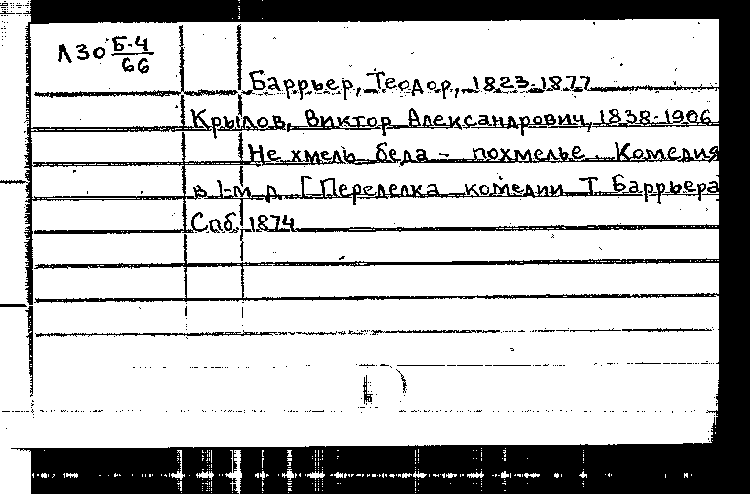 Л30 Б-4
66
Баррьер, Теодор, 1823-1877
Крылов, Виктор Александрович, 1838-1906
Не хмель беда - похмелье. Комедия
в 1-м д. [Переделка комедии Т. Баррьера]
Спб. 1874